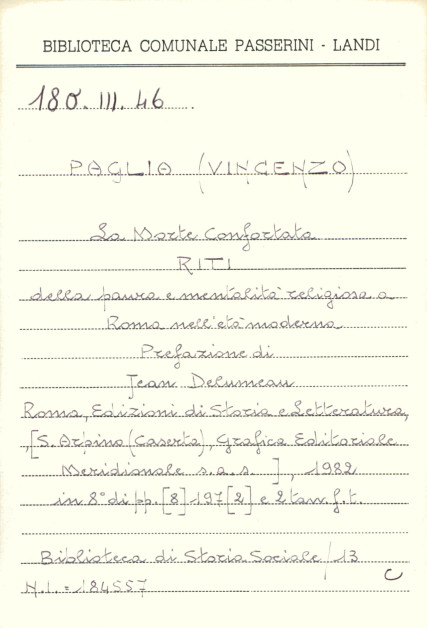 BIBLIOTECA COMUNALE PASSERINI - LANDI
180. III. 46
PAGLIA (VINCENZO)
La Morte Confortata
RITI
della paura e mentalità religiosa a
Roma nell'età moderna
Prefazione di
Jean Delumeau
Roma, Edizioni di Storia e Letteratura,
,[S. Arpino (Caserta), Grafica Editoriale
Meridionale s.a.s. ], 1982
in 8° di pp. [8] 197 [2] e 2 tav. f.t.
Biblioteca di Storia Sociale / 13
N.I. = 184557
C